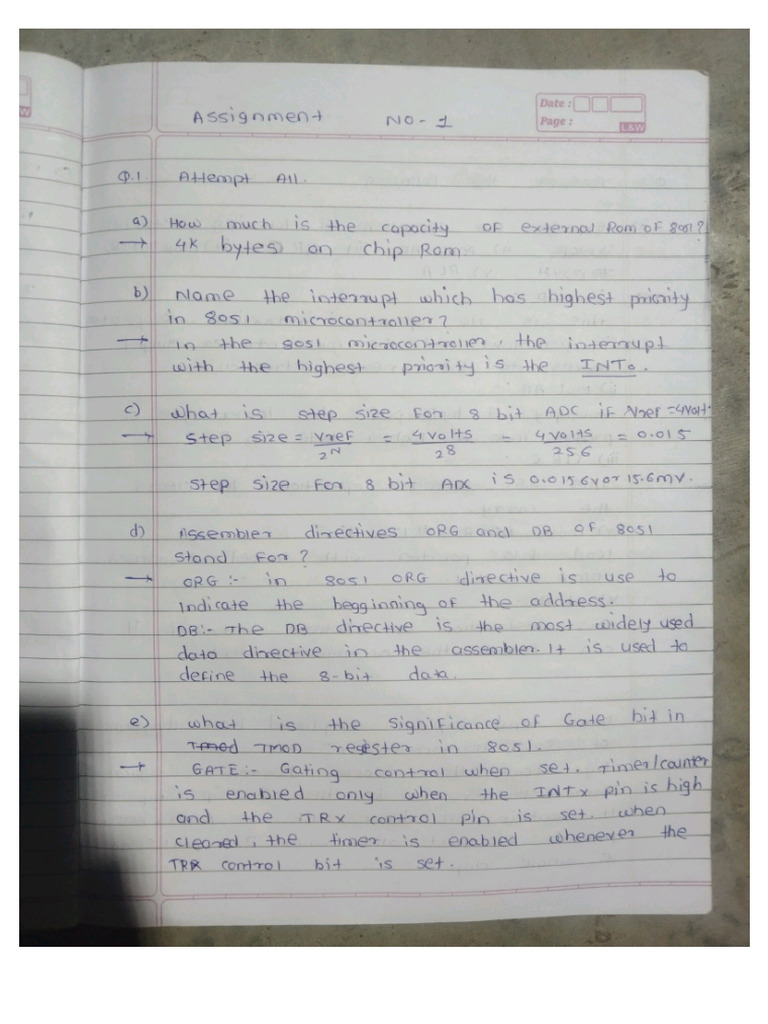 Assignment NO-1
Date :
Page :
L&W
Q.1. Attempt All.
a) How much is the capacity of external Rom of 8051?
→ 4K bytes on chip Rom
b) Name the interrupt which has highest priority
in 8051 microcontroller?
→ In the 8051 microcontroller, the interrupt
with the highest priority is the INT0.
c) What is step size for 8 bit ADC if Vref =4Volt.
→ Step size = Vref/2^N = 4volts/2^8 - 4volts/256 = 0.015
Step size for 8 bit ADC is 0.0156v or 15.6mv.
d) Assembler directives ORG and DB of 8051
stand for?
→ ORG :- in 8051 ORG directive is use to
indicate the begginning of the address.
DB:- The DB directive is the most widely used
data directive in the assembler. It is used to
define the 8-bit data.
e) what is the significance of Gate bit in
Tmod TMOD regester in 8051.
→ GATE:- Gating control when set. Timer/counter
is enabled only when the INTx pin is high
and the TRx control pin is set. when
cleared, the timer is enabled whenever the
TRX control bit is set.